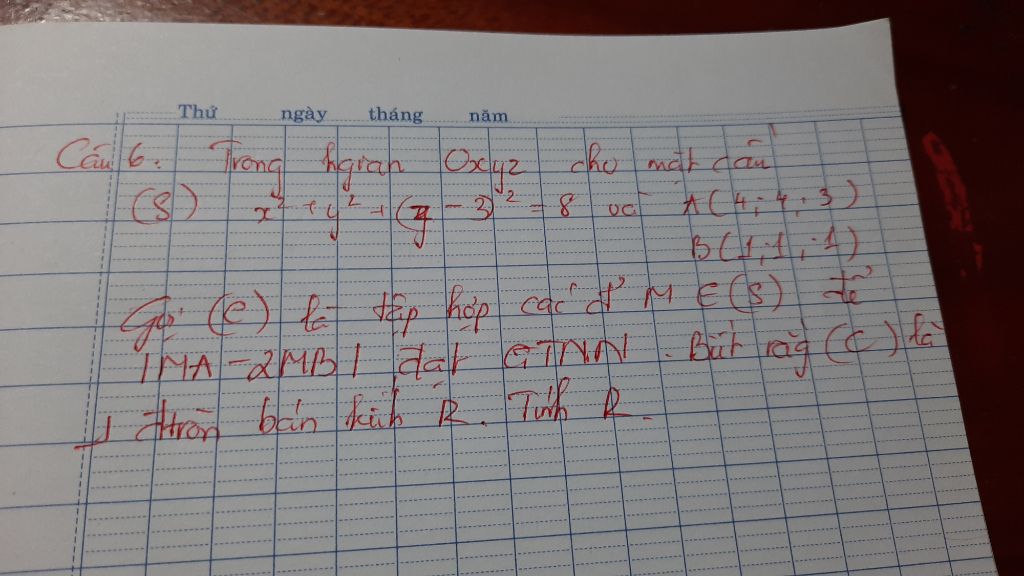 Thứ ngày tháng năm
Câu 6. Trong kgian Oxyz cho mặt cầu
(S) x² + y² + (z - 3)² = 8 và A(4; 4; 3)
B(1; 1; -1)
Gọi (C) là tập hợp các đ' M ∈ (S) để
|MA - 2MB| đạt GTNN. Biết rằg (C) là
1 đtròn bán kính R. Tính R.